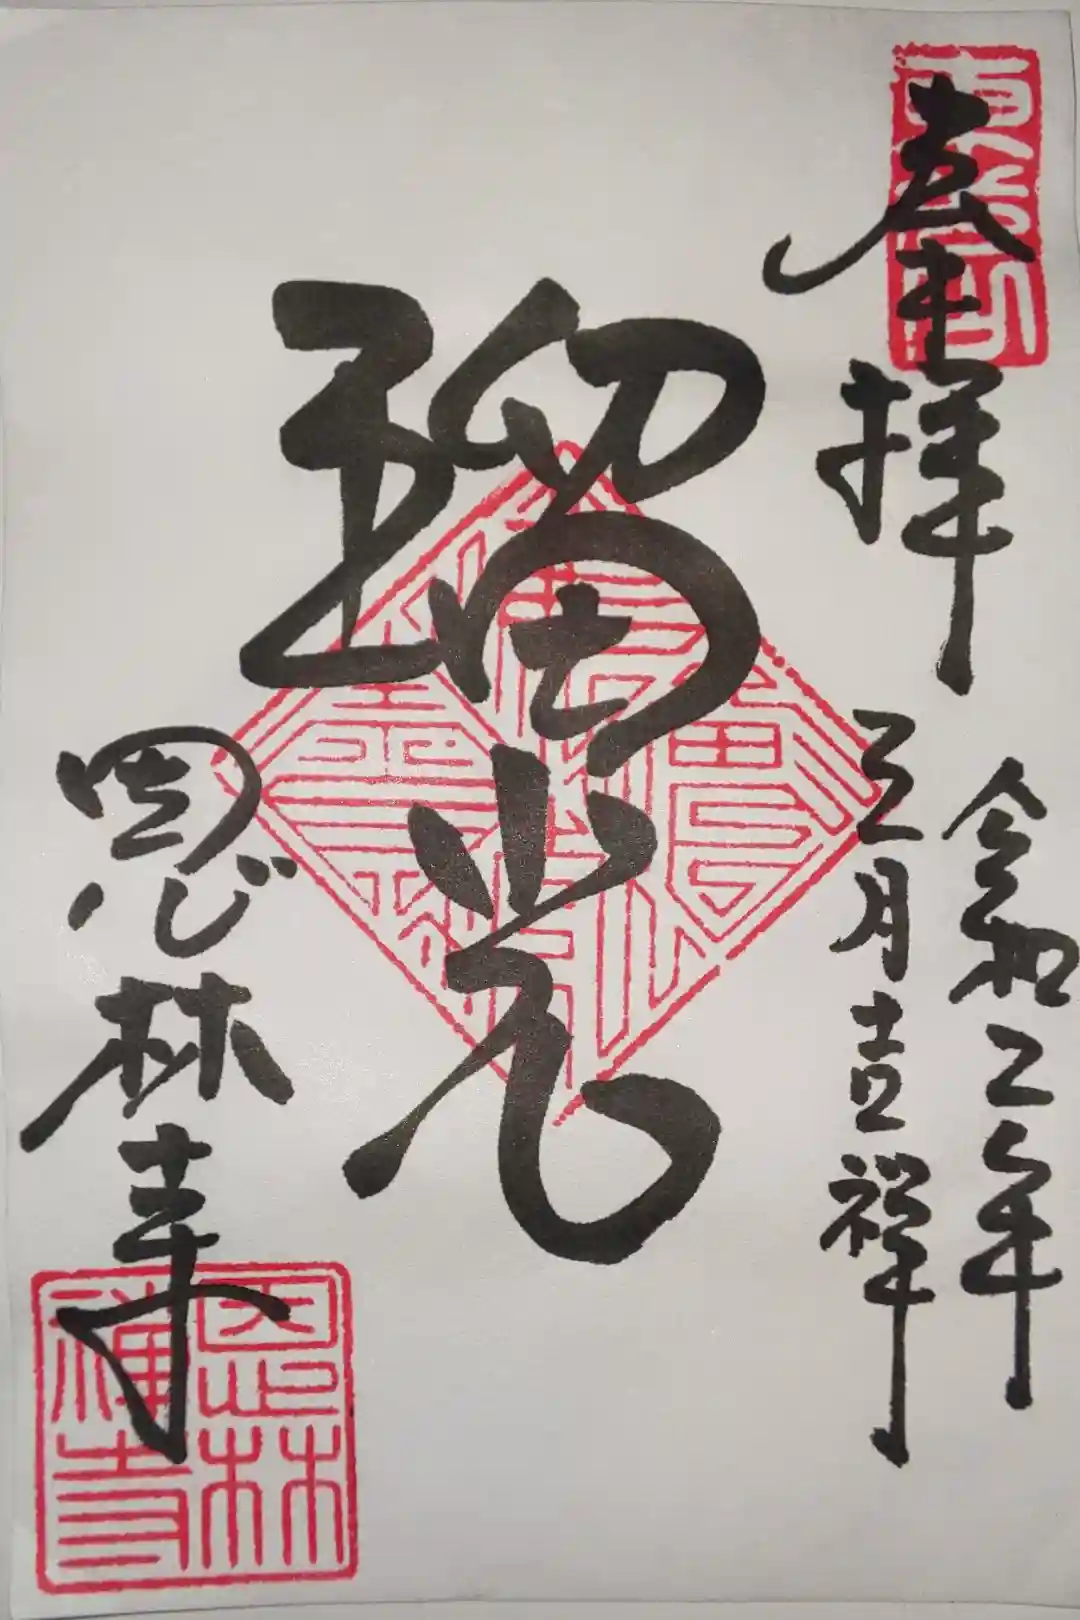 奉拝
令和二年
月吉祥
瑠光
恩林寺
恩林
禅寺